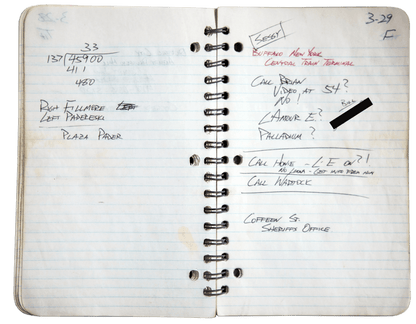 33
137 45900
411
480
Right Fillmere
Left Papereski
Plaza Paper
3-29
F
Buffalo New York
Central Train Terminal
Call Brian
Video at 54?
No!
L'Amour E?
Palladium?
Call Home - L.E on?!
Call Waddick
Coffeen St.
Sheriffs Office